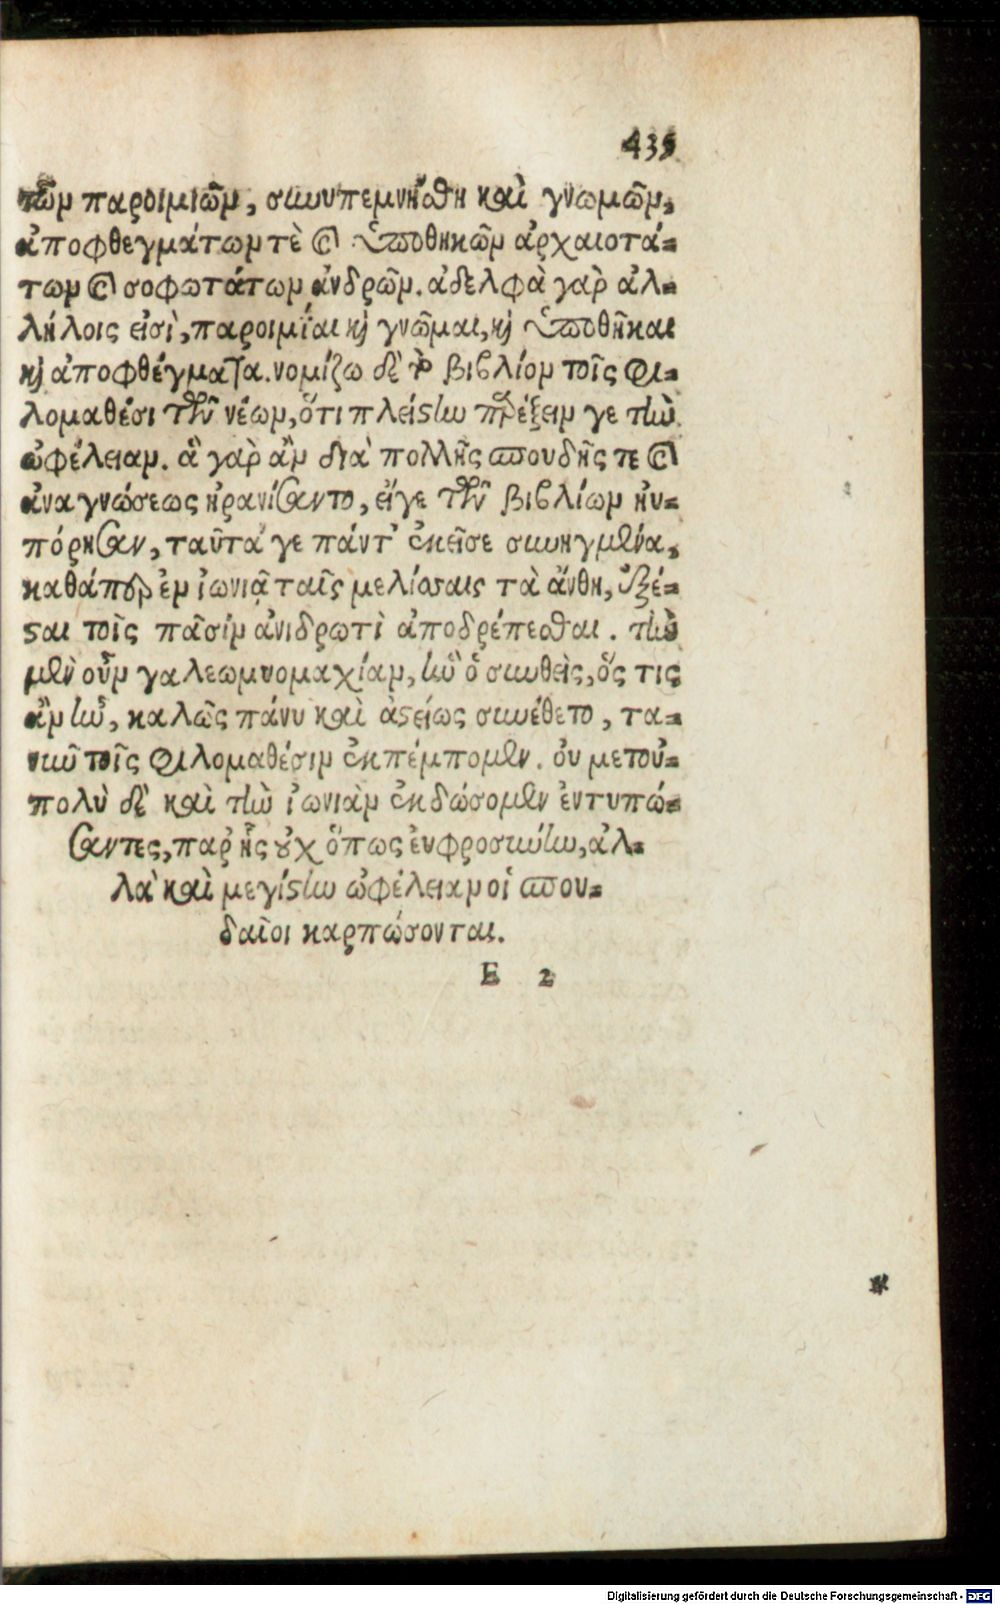 435
τῶν παροιμιῶν, συνυπεμνήσθη καὶ γνωμῶν,
ἀποφθεγμάτων τὲ καὶ ὑποθηκῶν ἀρχαιοτά-
των καὶ σοφωτάτων ἀνδρῶν. ἀδελφὰ γὰρ ἀλ-
λήλοις εἰσὶ, παροιμίαι καὶ γνῶμαι, καὶ ὑποθῆκαι
καὶ ἀποφθέγματα. νομίζω δὲ τὸ βιβλίον τοῖς φι-
λομαθέσι τῶν νέων, ὅτι πλείστην παρέξειν γε τὴν
ὠφέλειαν. ἃ γὰρ ἂν διὰ πολλῆς σπουδῆς τε καὶ
ἀναγνώσεως ἠρανίσαντο, εἴγε τῶν βιβλίων ηὐ-
πόρησαν, ταῦτά γε πάντ' ἐκεῖσε συνηγμένα,
καθάπερ ἐν ἰωνιᾷ ταῖς μελίσσαις τὰ ἄνθη, ἐξέ-
σται τοῖς πᾶσιν ἀνιδρωτὶ ἀποδρέπεσθαι. τὴν
μὲν οὖν γαλεωμυομαχίαν, ἣν ὁ συνθεὶς, ὅς τις
ἂν ἦν, καλῶς πάνυ καὶ ἀστείως συνέθετο, τα-
νῦν τοῖς φιλομαθέσιν ἐκπέμπομεν. οὐ μετοὐ-
πολὺ δὲ καὶ τὴν ἰωνιὰν ἐκδώσομεν ἐντυπώ-
σαντες, παρ' ἧς οὐχ ὅπως εὐφροσύνην, ἀλ-
λὰ καὶ μεγίστην ὠφέλειαν οἱ σπου-
δαῖοι καρπώσονται.
E 2
Digitalisierung gefördert durch die Deutsche Forschungsgemeinschaft - DFG